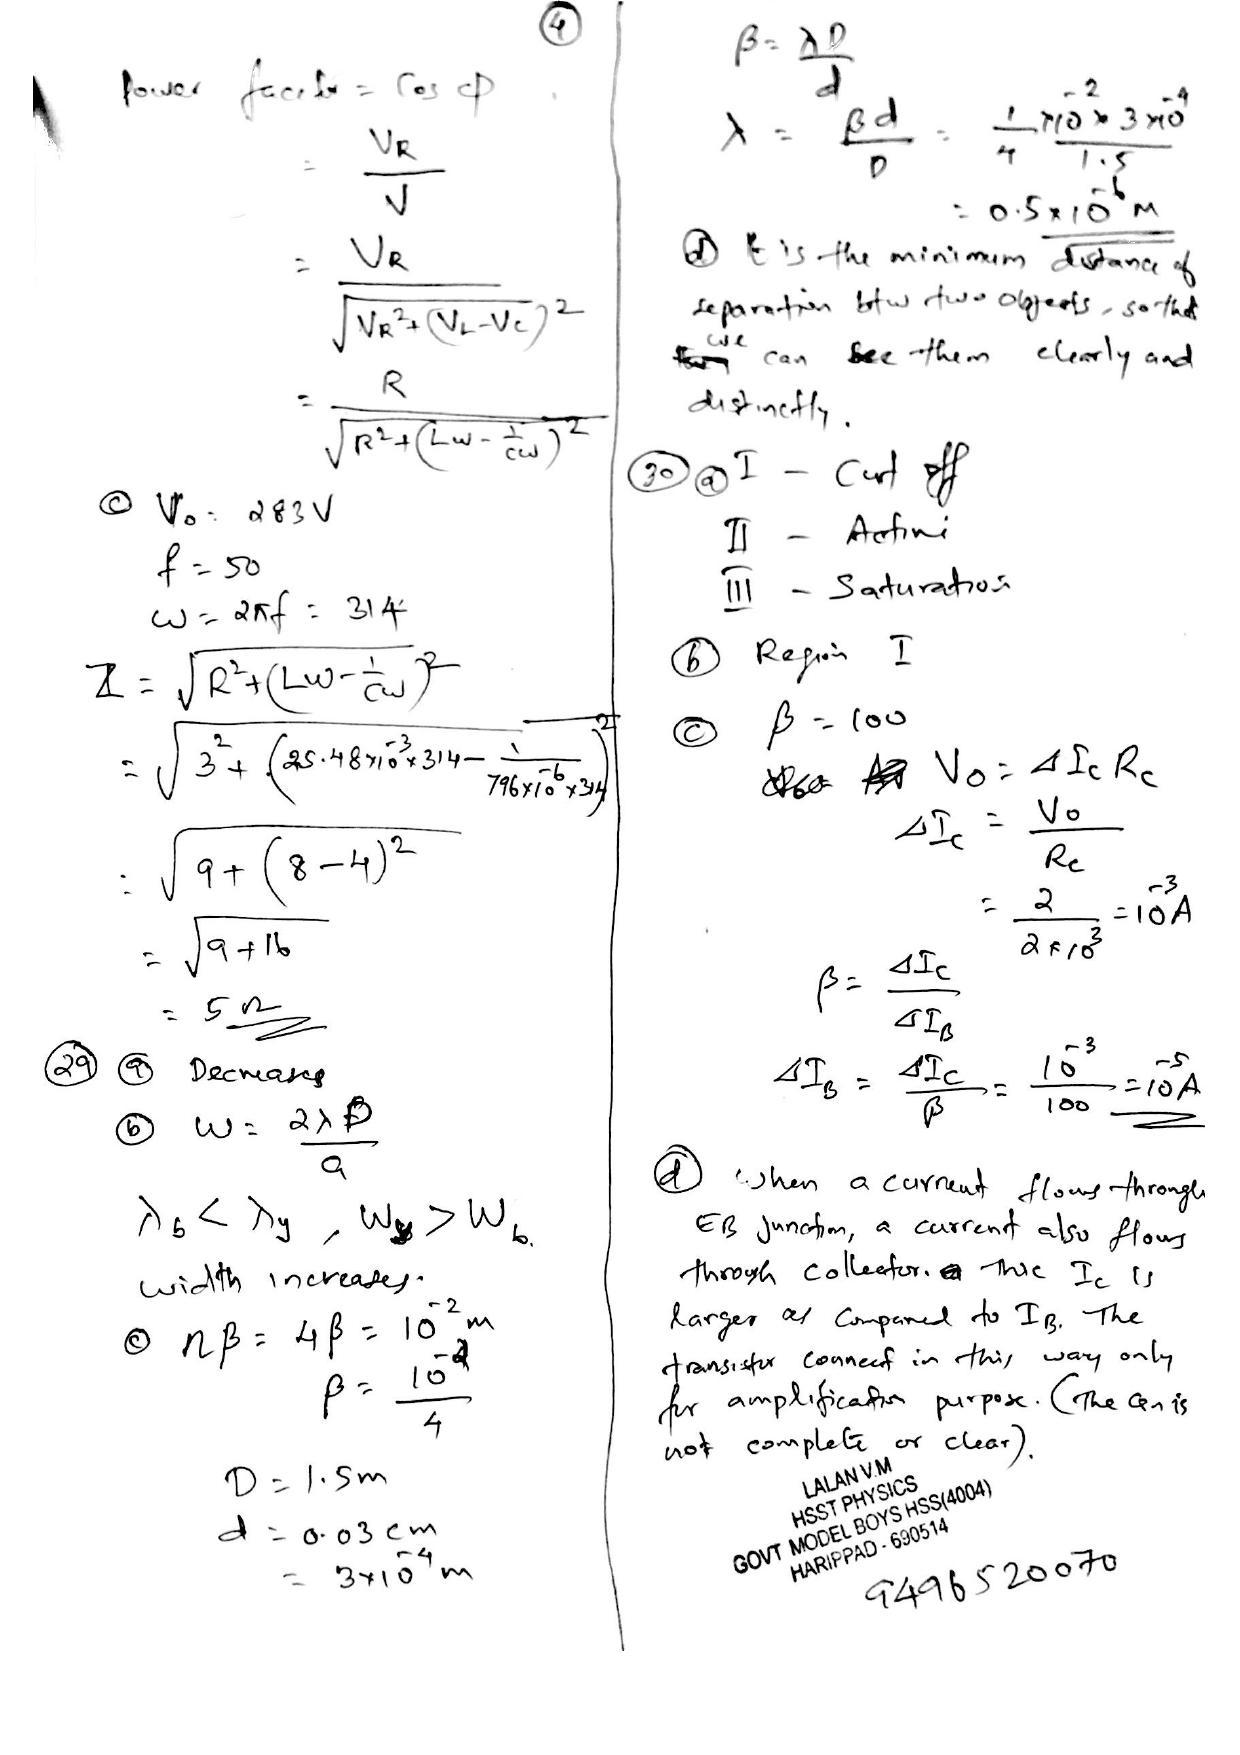 4
Power factor = Cos φ
= VR / V
= VR / √VR² + (VL - VC)²
= R / √R² + (Lω - 1/Cω)²
c V₀ = 283V
f = 50
ω = 2πf = 314
Z = √R² + (Lω - 1/Cω)²
= √3² + (25.48×10⁻³×314 - 1/796×10⁻⁶×314)²
= √9 + (8-4)²
= √9+16
= 5Ω
29 a Decreases
b W = 2λD / a
λb < λy , Wy > Wb.
width increases.
c nβ = 4β = 10⁻² m
β = 10⁻² / 4
D = 1.5m
d = 0.03 cm
= 3×10⁻⁴ m
β = λD / d
λ = βd / D = 1/4 ×10⁻² × 3×10⁻⁴ / 1.5
= 0.5×10⁻⁶ M
d It is the minimum distance of
separation btw two objects, so that
we can see them clearly and
distinctly.
30 a I - Cut off
II - Active
III - Saturation
b Region I
c β = 100
V₀ = ΔIc Rc
ΔIc = V₀ / Rc
= 2 / 2×10³ = 10⁻³ A
β = ΔIc / ΔIB
ΔIB = ΔIc / β = 10⁻³ / 100 = 10⁻⁵ A
d When a current flows through
EB junction, a current also flows
through collector. This Ic is
larger as compared to IB. The
transistor connect in this way only
for amplification purpose. (The Qn is
not complete or clear).
LALAN V.M
HSST PHYSICS
GOVT MODEL BOYS HSS(4004)
HARIPPAD - 690514
9496520070